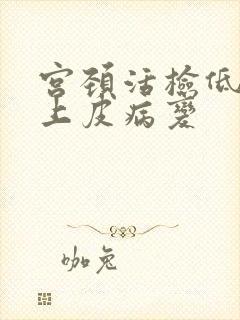 宫颈活检低
上皮病变
咖兔